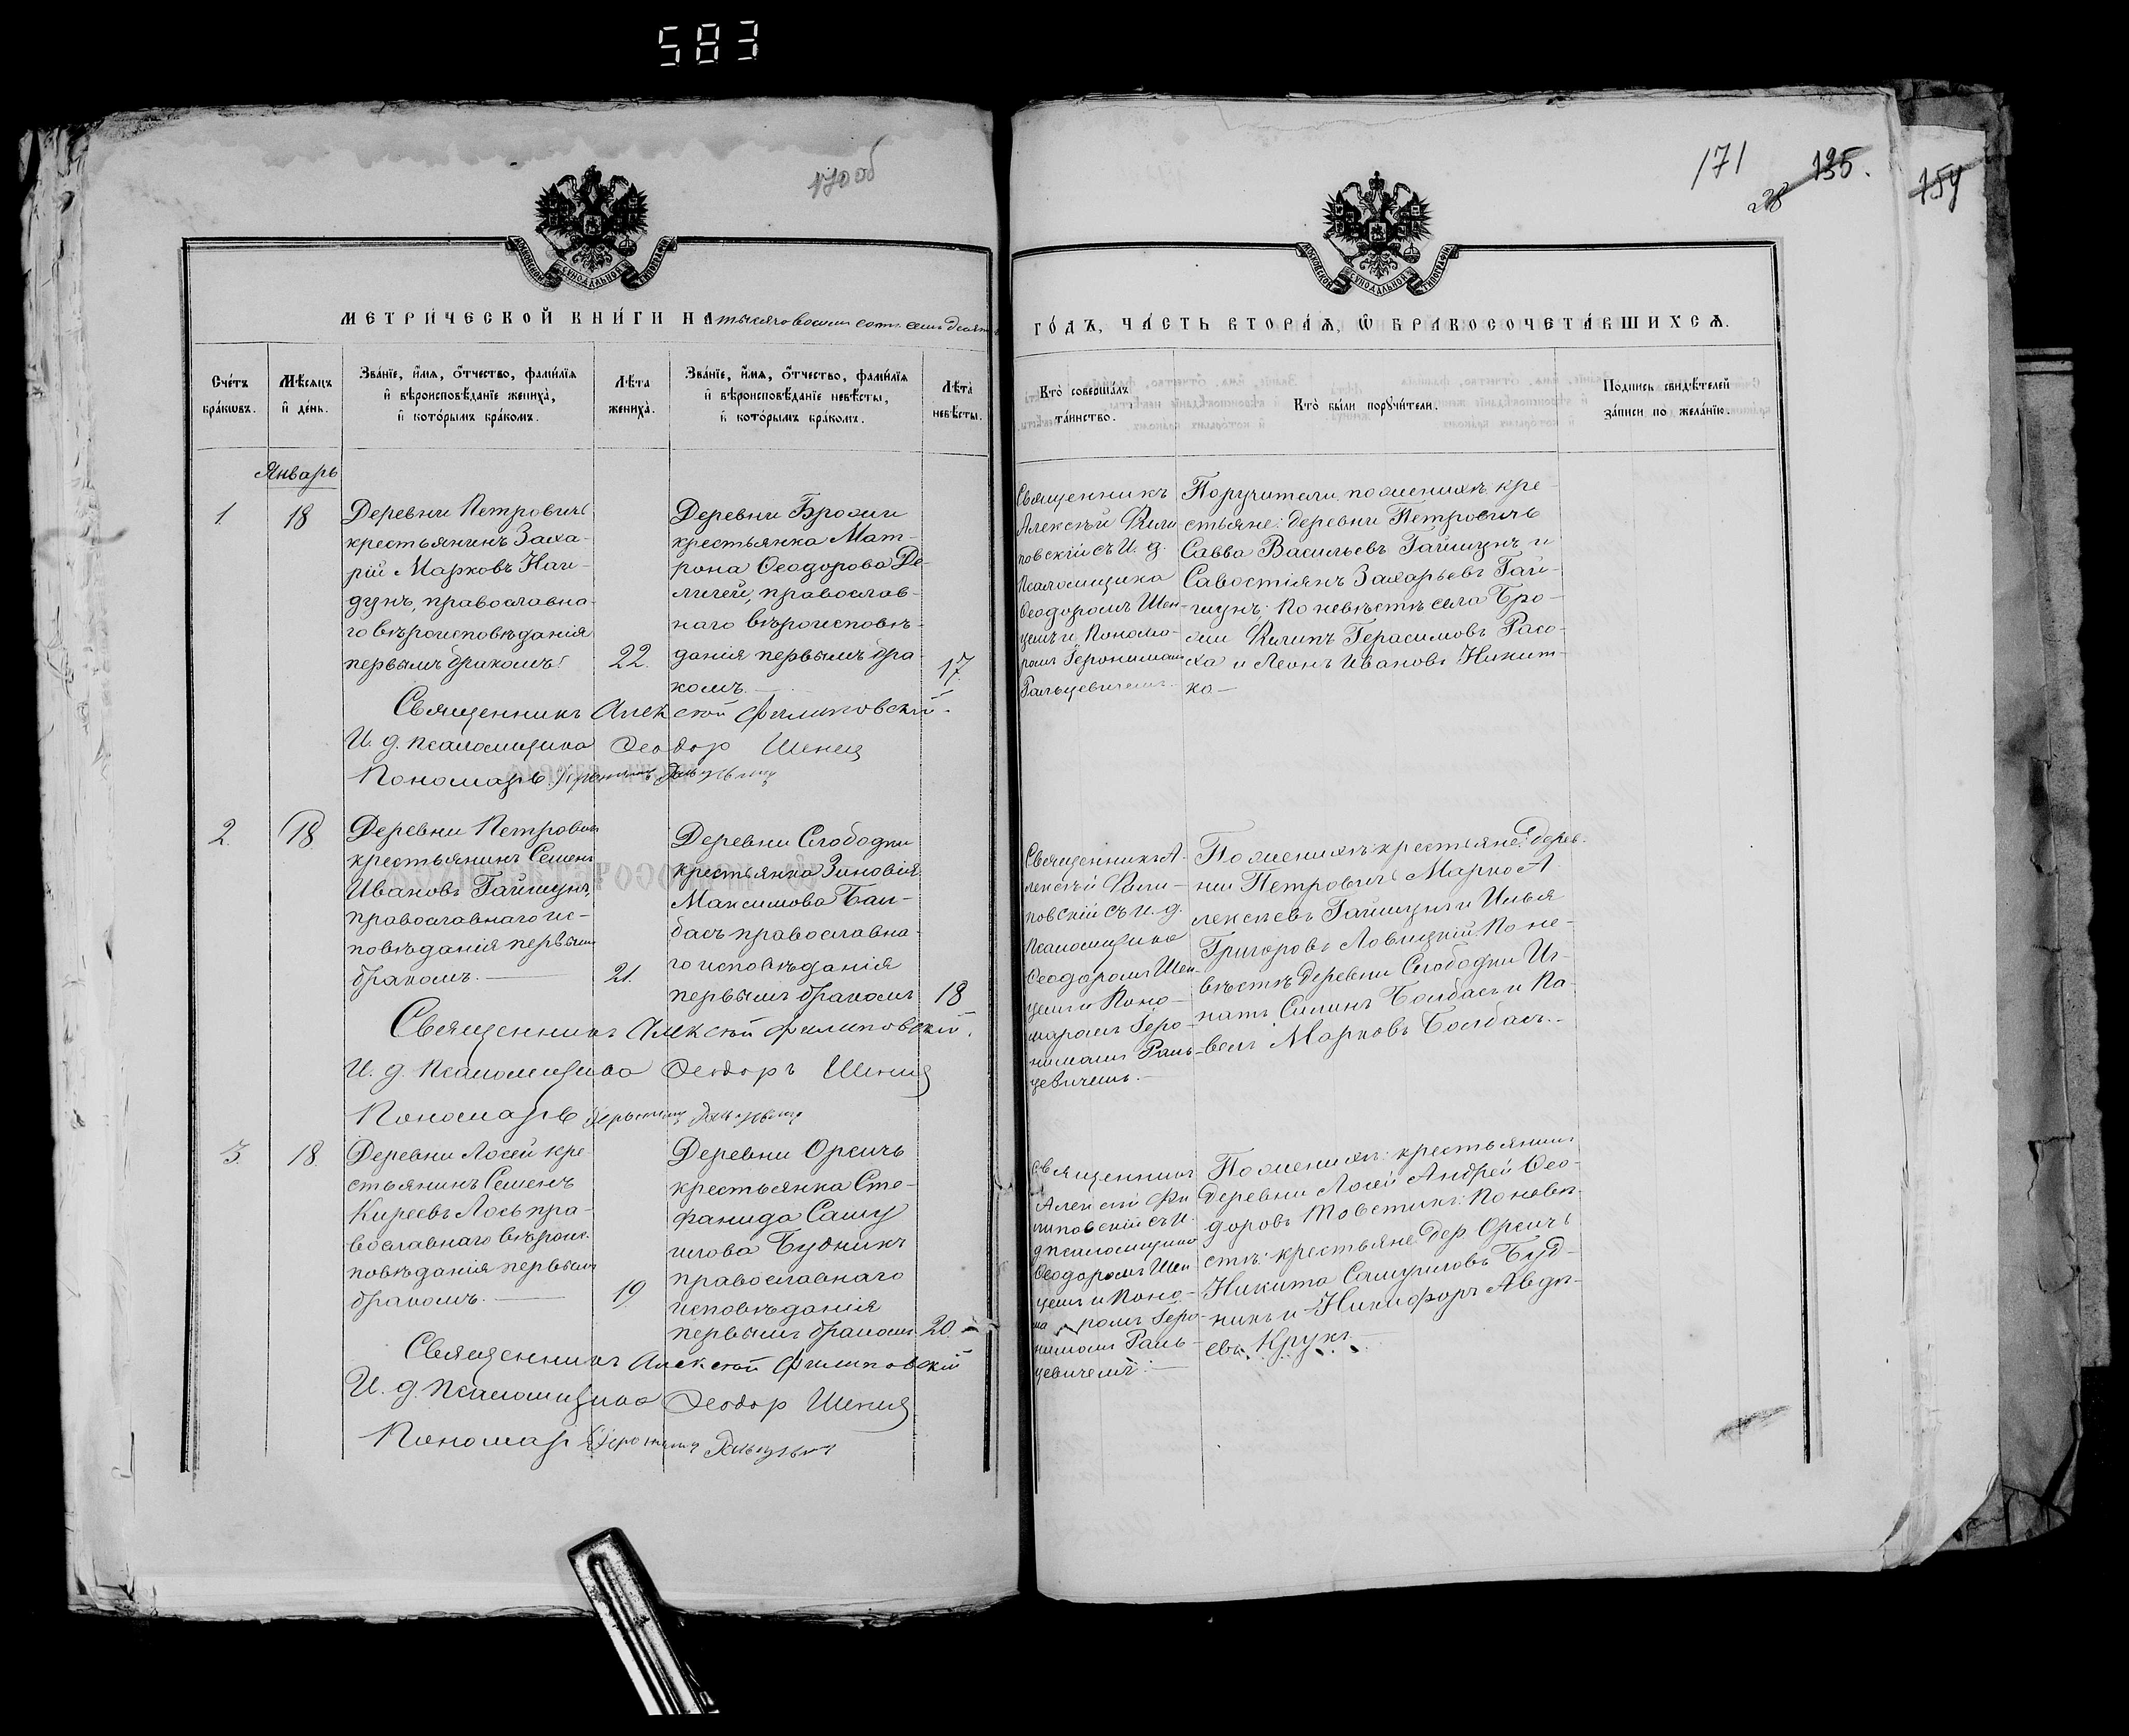 583
170 об
171
135.
28
154
МОСКОВСКОЙ СѴНОДАЛЬНОЙ ТИПОГРАФІИ
МОСКОВСКОЙ СѴНОДАЛЬНОЙ ТИПОГРАФІИ
МЕТРИ́ЧЕСКОЙ КНИ́ГИ НА тысяча восемь сотъ семь десятъ
ГО́ДЪ, ЧА́СТЬ ВТОРА́Я, Ѿ БРАКОСОЧЕТА́ВШИХСѦ.
Сче́тъ бра́кѡвъ.
Мѣ́сѧцъ и҆ де́нь.
Зва́нїе, и҆́мѧ, ѻ҆́тчество, фамй́лїѧ
и҆ вѣроисповѣ́данїе жениха̀,
и҆ кото́рымъ бра́комъ.
Лѣ́та жениха̀.
Зва́нїе, и҆́мѧ, ѻ҆́тчество, фамй́лїѧ
и҆ вѣроисповѣ́данїе невѣ́сты,
и҆ кото́рымъ бра́комъ.
Лѣ́та невѣ́сты.
Кто̀ соверша́лъ та́инство.
Кто̀ бы́ли порꙋчи́тели.
По́дпись свидѣ́телей
за́писи по жела́нїю.
Январь
1.
18
Деревни Петровичъ
крестьянинъ Заха-
рій Марковъ
православна-
го вѣроисповѣданія
первымъ бракомъ
22.
Деревни Брожи
крестьянка Мат-
рона Ѳеодорова
православ-
наго вѣроисповѣ-
данія первымъ бра-
комъ.
17.
Священникъ
Алексѣй Фили
повскій съ И. д.
Псаломщика
Ѳеодоромъ Шен-
цемъ и Понома-
ромъ Іеронимомъ
Ральцевичемъ
Поручители по женихѣ кре-
стьяне: деревни Петровичъ
Савва Васильевъ Гайшунъ и
Савостіянъ Захарьевъ Гай-
шунъ. По невѣстѣ села Бро-
жи Филипъ Герасимовъ Расо-
ха и Леонъ Ивановъ Никит-
ко—
Священникъ Алексѣй Филиповскій.
И. д. Псаломщика Ѳеодор Шенец
Пономарь Іеронимъ Ральцевичъ
2.
18
Деревни Петровичъ
крестьянинъ Семенъ
Ивановъ Гайшунъ,
православнаго ис-
повѣданія первымъ
бракомъ.
21.
Деревни Слободки
крестьянка Зиновія
Максимова Бал-
басъ православна-
го исповѣданія
первымъ бракомъ
18
Священникъ А-
лексѣй Фили-
повскій съ И. д.
Псаломщика
Ѳеодоромъ Шен-
цемъ и Поно-
маромъ Іеро-
нимомъ Раль-
цевичемъ.
По женихѣ крестьяне: дерев-
ни Петровичъ Марко А
лексѣевъ Гайшунъ и Илья
Григоровъ Ловицкій. По не-
вѣстѣ деревни Слободки Иг-
натъ Силинъ Болбасъ и Па-
велъ Марковъ Болбасъ.
Священникъ Алексѣй Филиповскій.
И. д. Псаломщика Ѳеодоръ Шенец
Пономарь Іеронимъ Ральцевичъ
3.
18.
Деревни Лосей кре-
стьянинъ Семенъ
Киреевъ Лось пра-
вославнаго вѣроис-
повѣданія первымъ
бракомъ.
19
Деревни Орсичъ
крестьянка Сте-
фанида Саму
илова Будникъ
православнаго
исповѣданія
первымъ бракомъ
20.
Священникъ
Алексѣй Фи
липовскій съ И.
д псаломщика
Ѳеодоромъ Шен
цемъ и Поно-
ма ромъ Іеро-
нимомъ Раль-
цевичемъ.
По женихѣ: крестьянинъ
деревни Лосей Андрей Ѳео-
доровъ Товстикъ. По невѣ-
стѣ: крестьяне дер. Орсичъ
Никита Самуиловъ Буд-
никъ и Никифоръ Авдѣ-
евъ Крукъ.
Священникъ Алексѣй Филиповскій
И. д. Псаломщика Ѳеодор Шенец
Пономар Іеронимъ Ральцевичъ